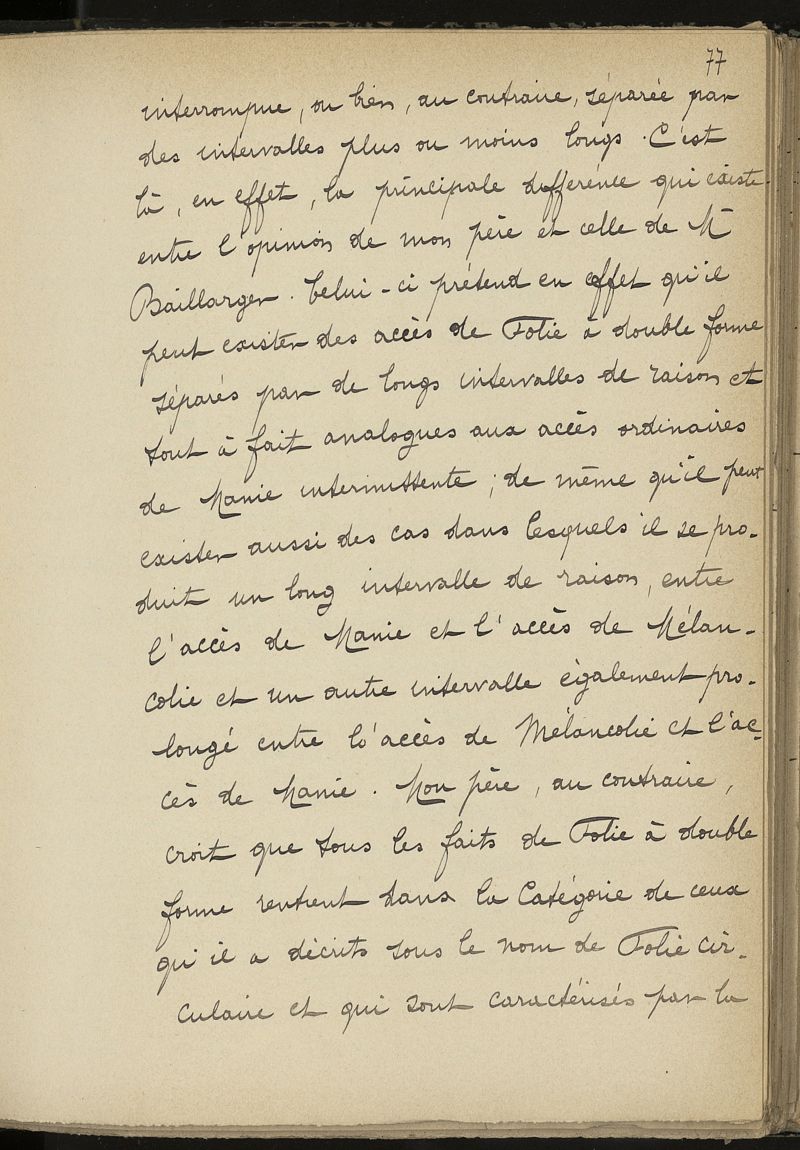 77
interrompue, ou bien, au contraire, séparée par
des intervalles plus ou moins longs. C'est
là, en effet, la principale différence qui existe
entre l'opinion de mon père et celle de Mr
Baillarger. Celui-ci prétend en effet qu'il
peut exister des accès de Folie à double forme
séparés par de longs intervalles de raison et
tout à fait analogues aux accès ordinaires
de Manie intermittente ; de même qu'il peut
exister aussi des cas dans lesquels il se pro-
duit un long intervalle de raison, entre
l'accès de Manie et l'accès de Mélan-
colie et un autre intervalle également pro-
longé entre l'accès de Mélancolie et l'ac-
cès de Manie. Mon père, au contraire,
croit que tous les faits de Folie à double
forme rentrent dans la Catégorie de ceux
qu'il a décrits sous le nom de Folie cir-
culaire et qui sont caractérisés par la